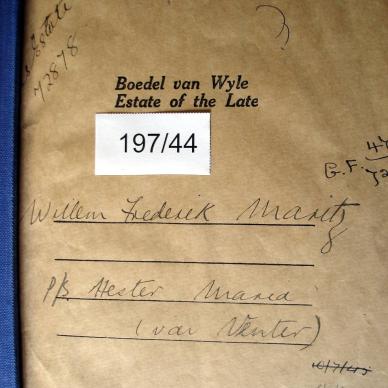 Estate
72878
Boedel van Wyle
Estate of the Late
197/44
G.F.
Willem Frederik Maritz
&
p/s Hester Maria
(van Venter)